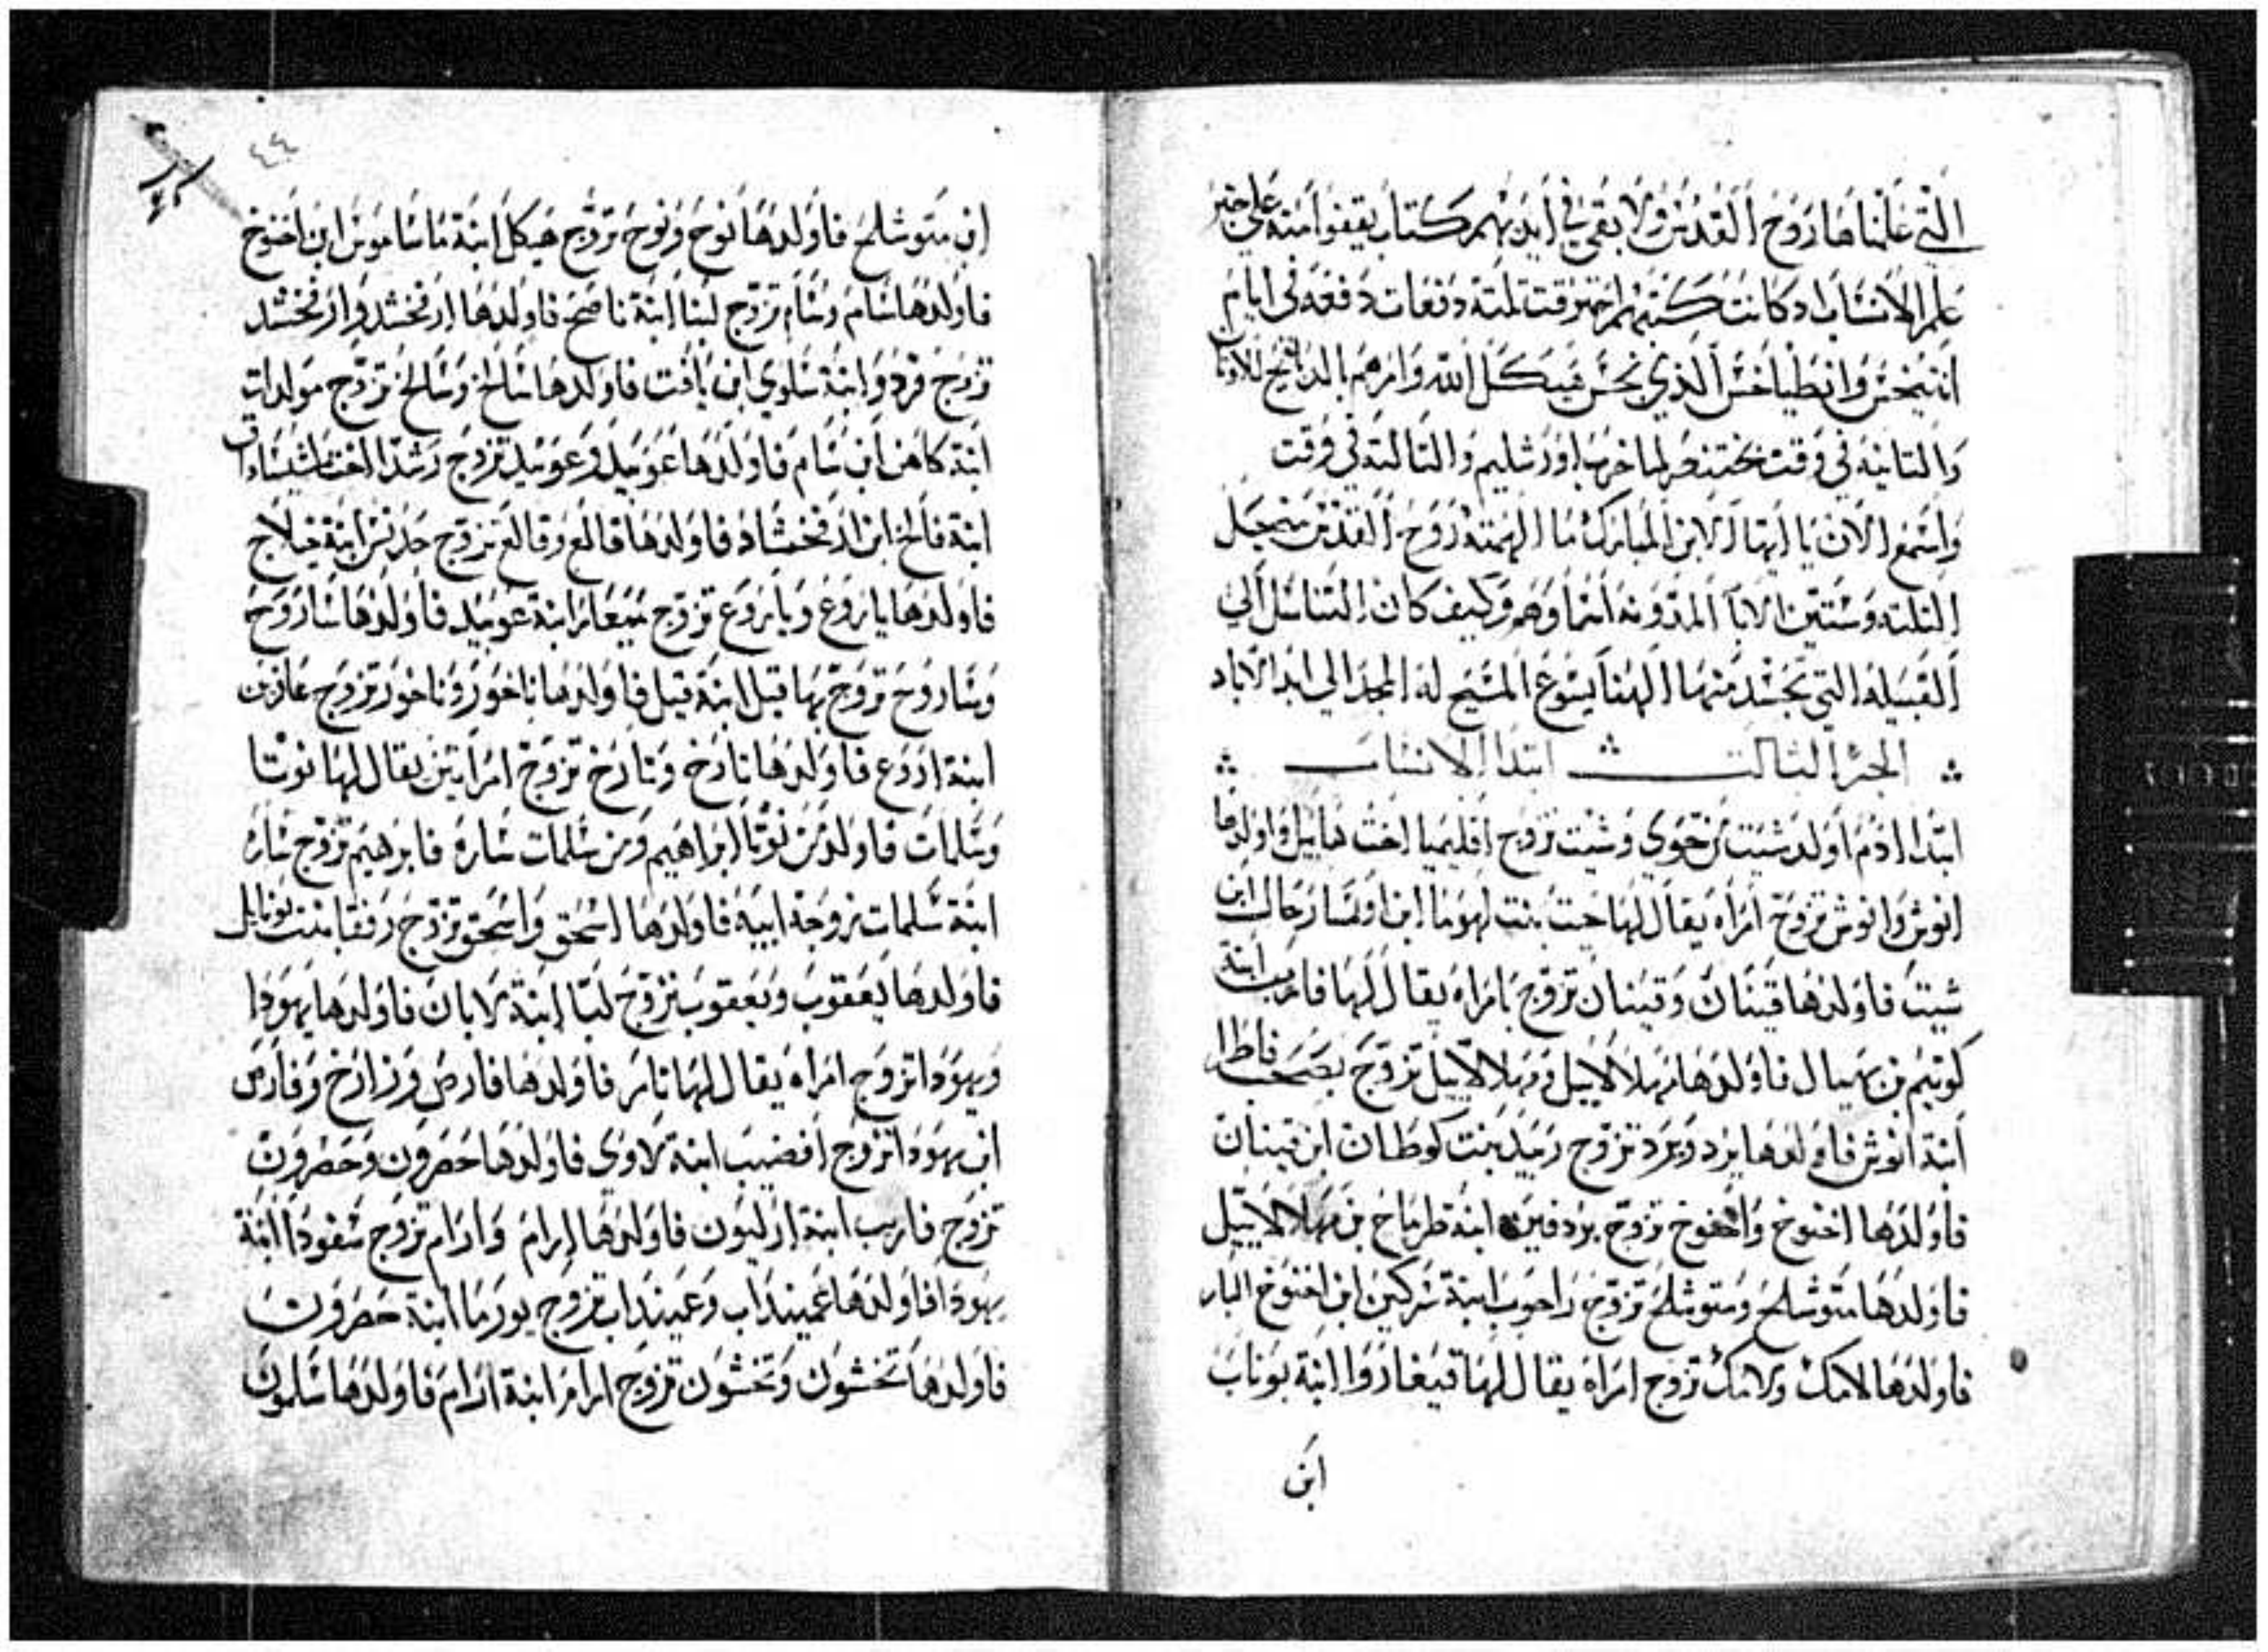 التي علمنا هاروح القدس ولا بقي في ايديهم كتاب يقفوا منه علي خبر
علم الانساب اد كانت كتبهم احترقت تلتة دفعات دفعه في ايام
انتيخس وانطياخس الذي نجس هيكل الله وامرهم بالدبايح للاوتان
والتانيه في وقت بختنصر لما خرب اورشليم والتالته في وقت
واسمع الان يا ايها الابن المبارك ما الهمته روح القدس من جبل
التلته وستين الابا المدونه اسماوهم وكيف كان التناسل الي
القبيله التي تجسد منها الهنا يسوع المسيح له المجد الي ابد الاباد
الجز التالت ابتدا الانساب
ابتدا ادم اولد شيت من حوي وشيت تزوج اقليميا اخت هابيل واولدها
انوش وانوش تزوج امراه يقال لها حيت بنت لهوما ابن اوفسا رحال ابن
شيت فاولدها قينان وقينان تزوج بامراه يقال لها فارب ابنة
كوتيم بن بهيال فاولدها مهلالاييل ومهلالاييل تزوج بصحب فاطر
ابنة انوش فاولدها يرد ويرد تزوج رميد بنت كوطان ابن قينان
فاولدها اخنوخ واخنوخ تزوج بردفين ابنة طرباخ بن مهلالاييل
فاولدها متوشلح ومتوشلح تزوج راحوب ابنة شركين ابن اخنوخ البار
فاولدها لامك ولامك تزوج امراه يقال لها قيغاروا ابنة يوناب
ابن
٤٤
ابن متوشلح فاولدها نوح ونوح تزوج هيكل ابنة ماساموس ابن اخنوخ
فاولدها سام وسام تزوج لينا ابنة ناصح فاولدها ارفخشد وارفخشد
تزوج فردوا ابنة سلوي ابن يافت فاولدها سالخ وسالخ تزوج مولدات
ابنة كاهن ابن سام فاولدها عوبيد وعوبيد تزوج رشدا اخت
ابنة فالخ ابن ارفخشاد فاولدها فالع وفالع تزوج حديس ابنة خيلاج
فاولدها ياروع وياروع تزوج ميعار ابنة عوبيد فاولدها ساروح
وساروح تزوج بها قيل ابنة قيل فاولدها ناخور وناخور تزوج عاذين
ابنة ازروع فاولدها تارخ وتارخ تزوج امراتين يقال لها نوسا
وسلمات فاولد من نوسا ابراهيم ومن سلمات ساره فابرهيم تزوج ساره
ابنة سلمات زوجة ابيه فاولدها اسحق واسحق تزوج رفقا بنت بوتايل
فاولدها يعقوب ويعقوب تزوج ليا ابنة لابان فاولدها يهودا
ويهودا تزوج امراه يقال لها تامر فاولدها فارص وزارخ وفارص
ابن يهودا تزوج افضيب ابنة لاوي فاولدها حصرون وحصرون
تزوج فارب ابنة ارليون فاولدها ارام وارام تزوج شفودا ابنة
يهودا فاولدها عميناداب وعميناداب تزوج يورما ابنة حصرون
فاولدها نخشون ونخشون تزوج امرام ابنة ارام فاولدها سلمون